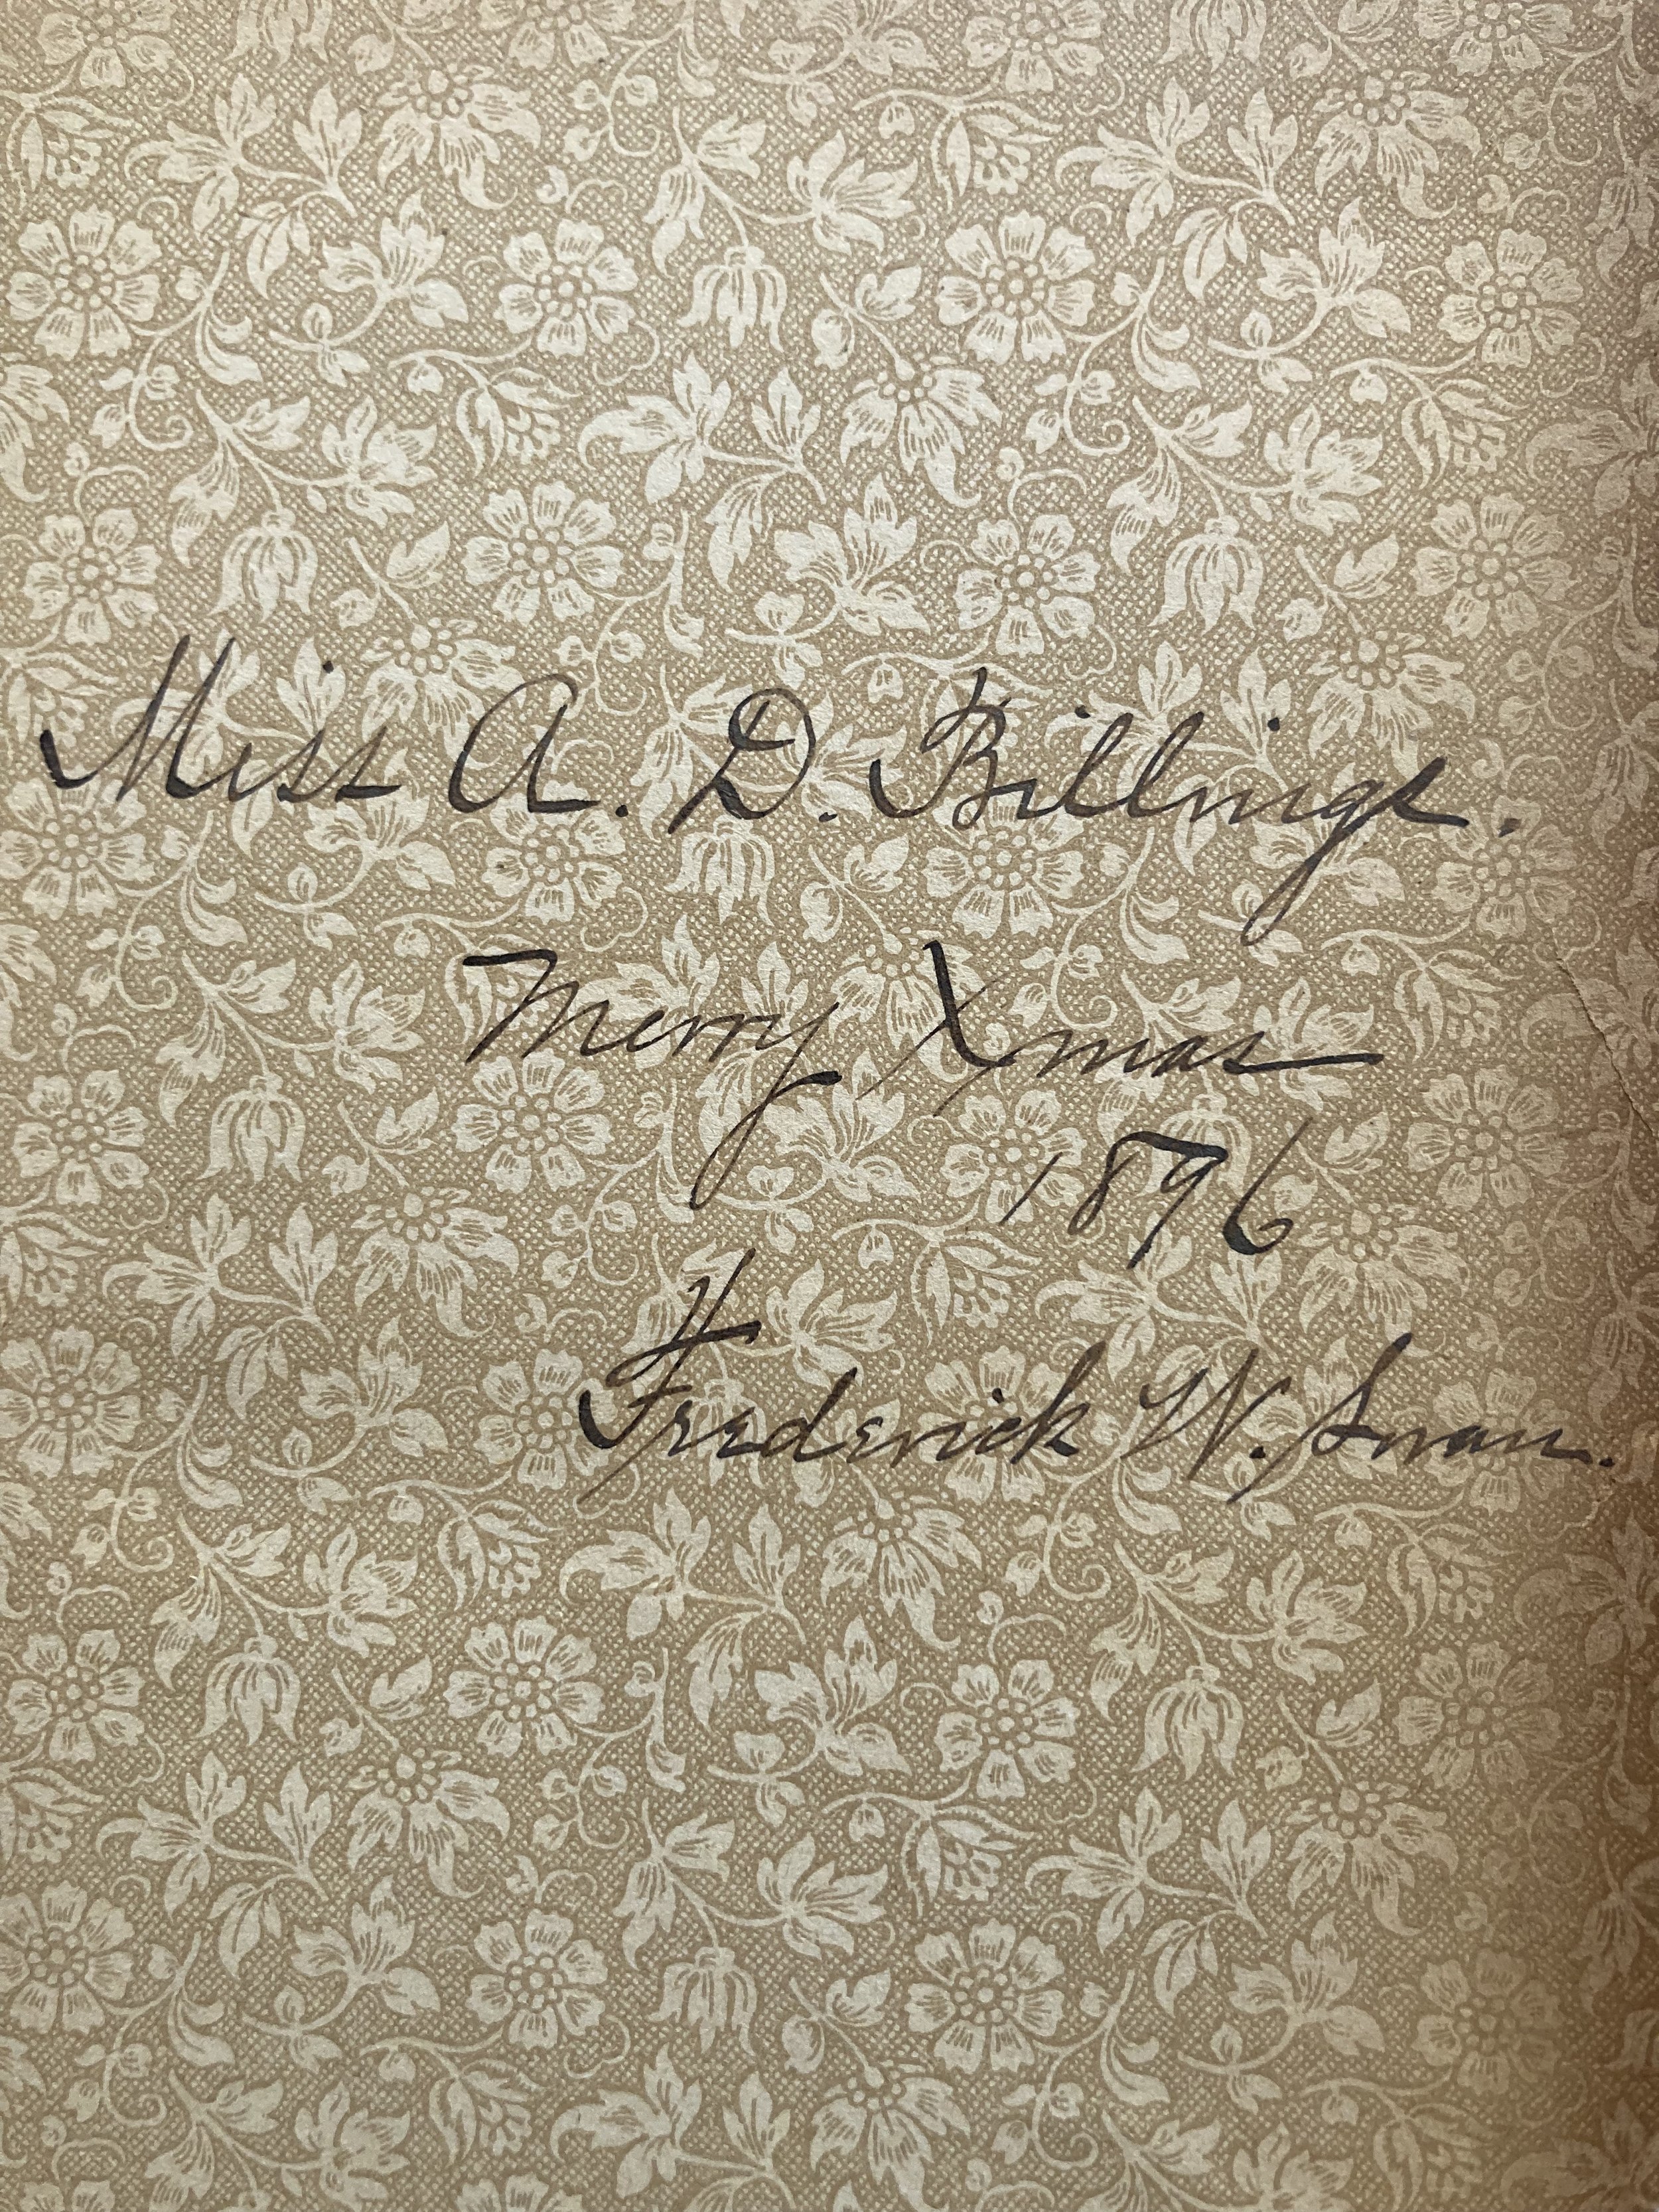 Miss A. D. Billings.
Merry Xmas
1896
Frederick W. Swan.